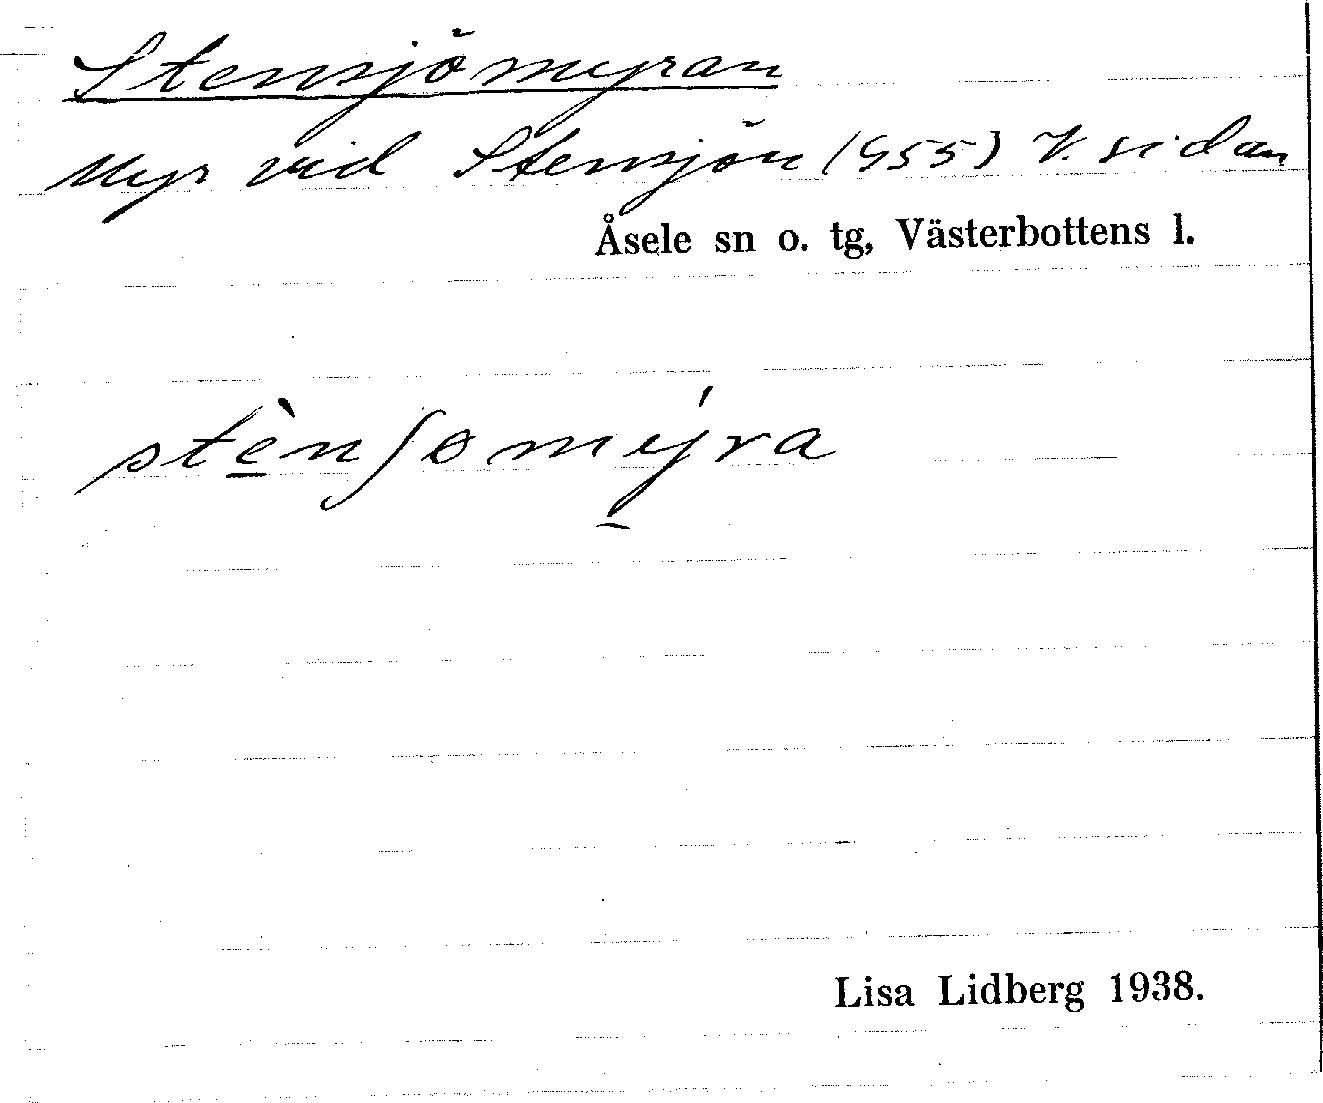 Stensjömyran
Myr vid Stensjön (G55) V. sidan
Åsele sn o. tg, Västerbottens l.
stènʃomýra
Lisa Lidberg 1938.